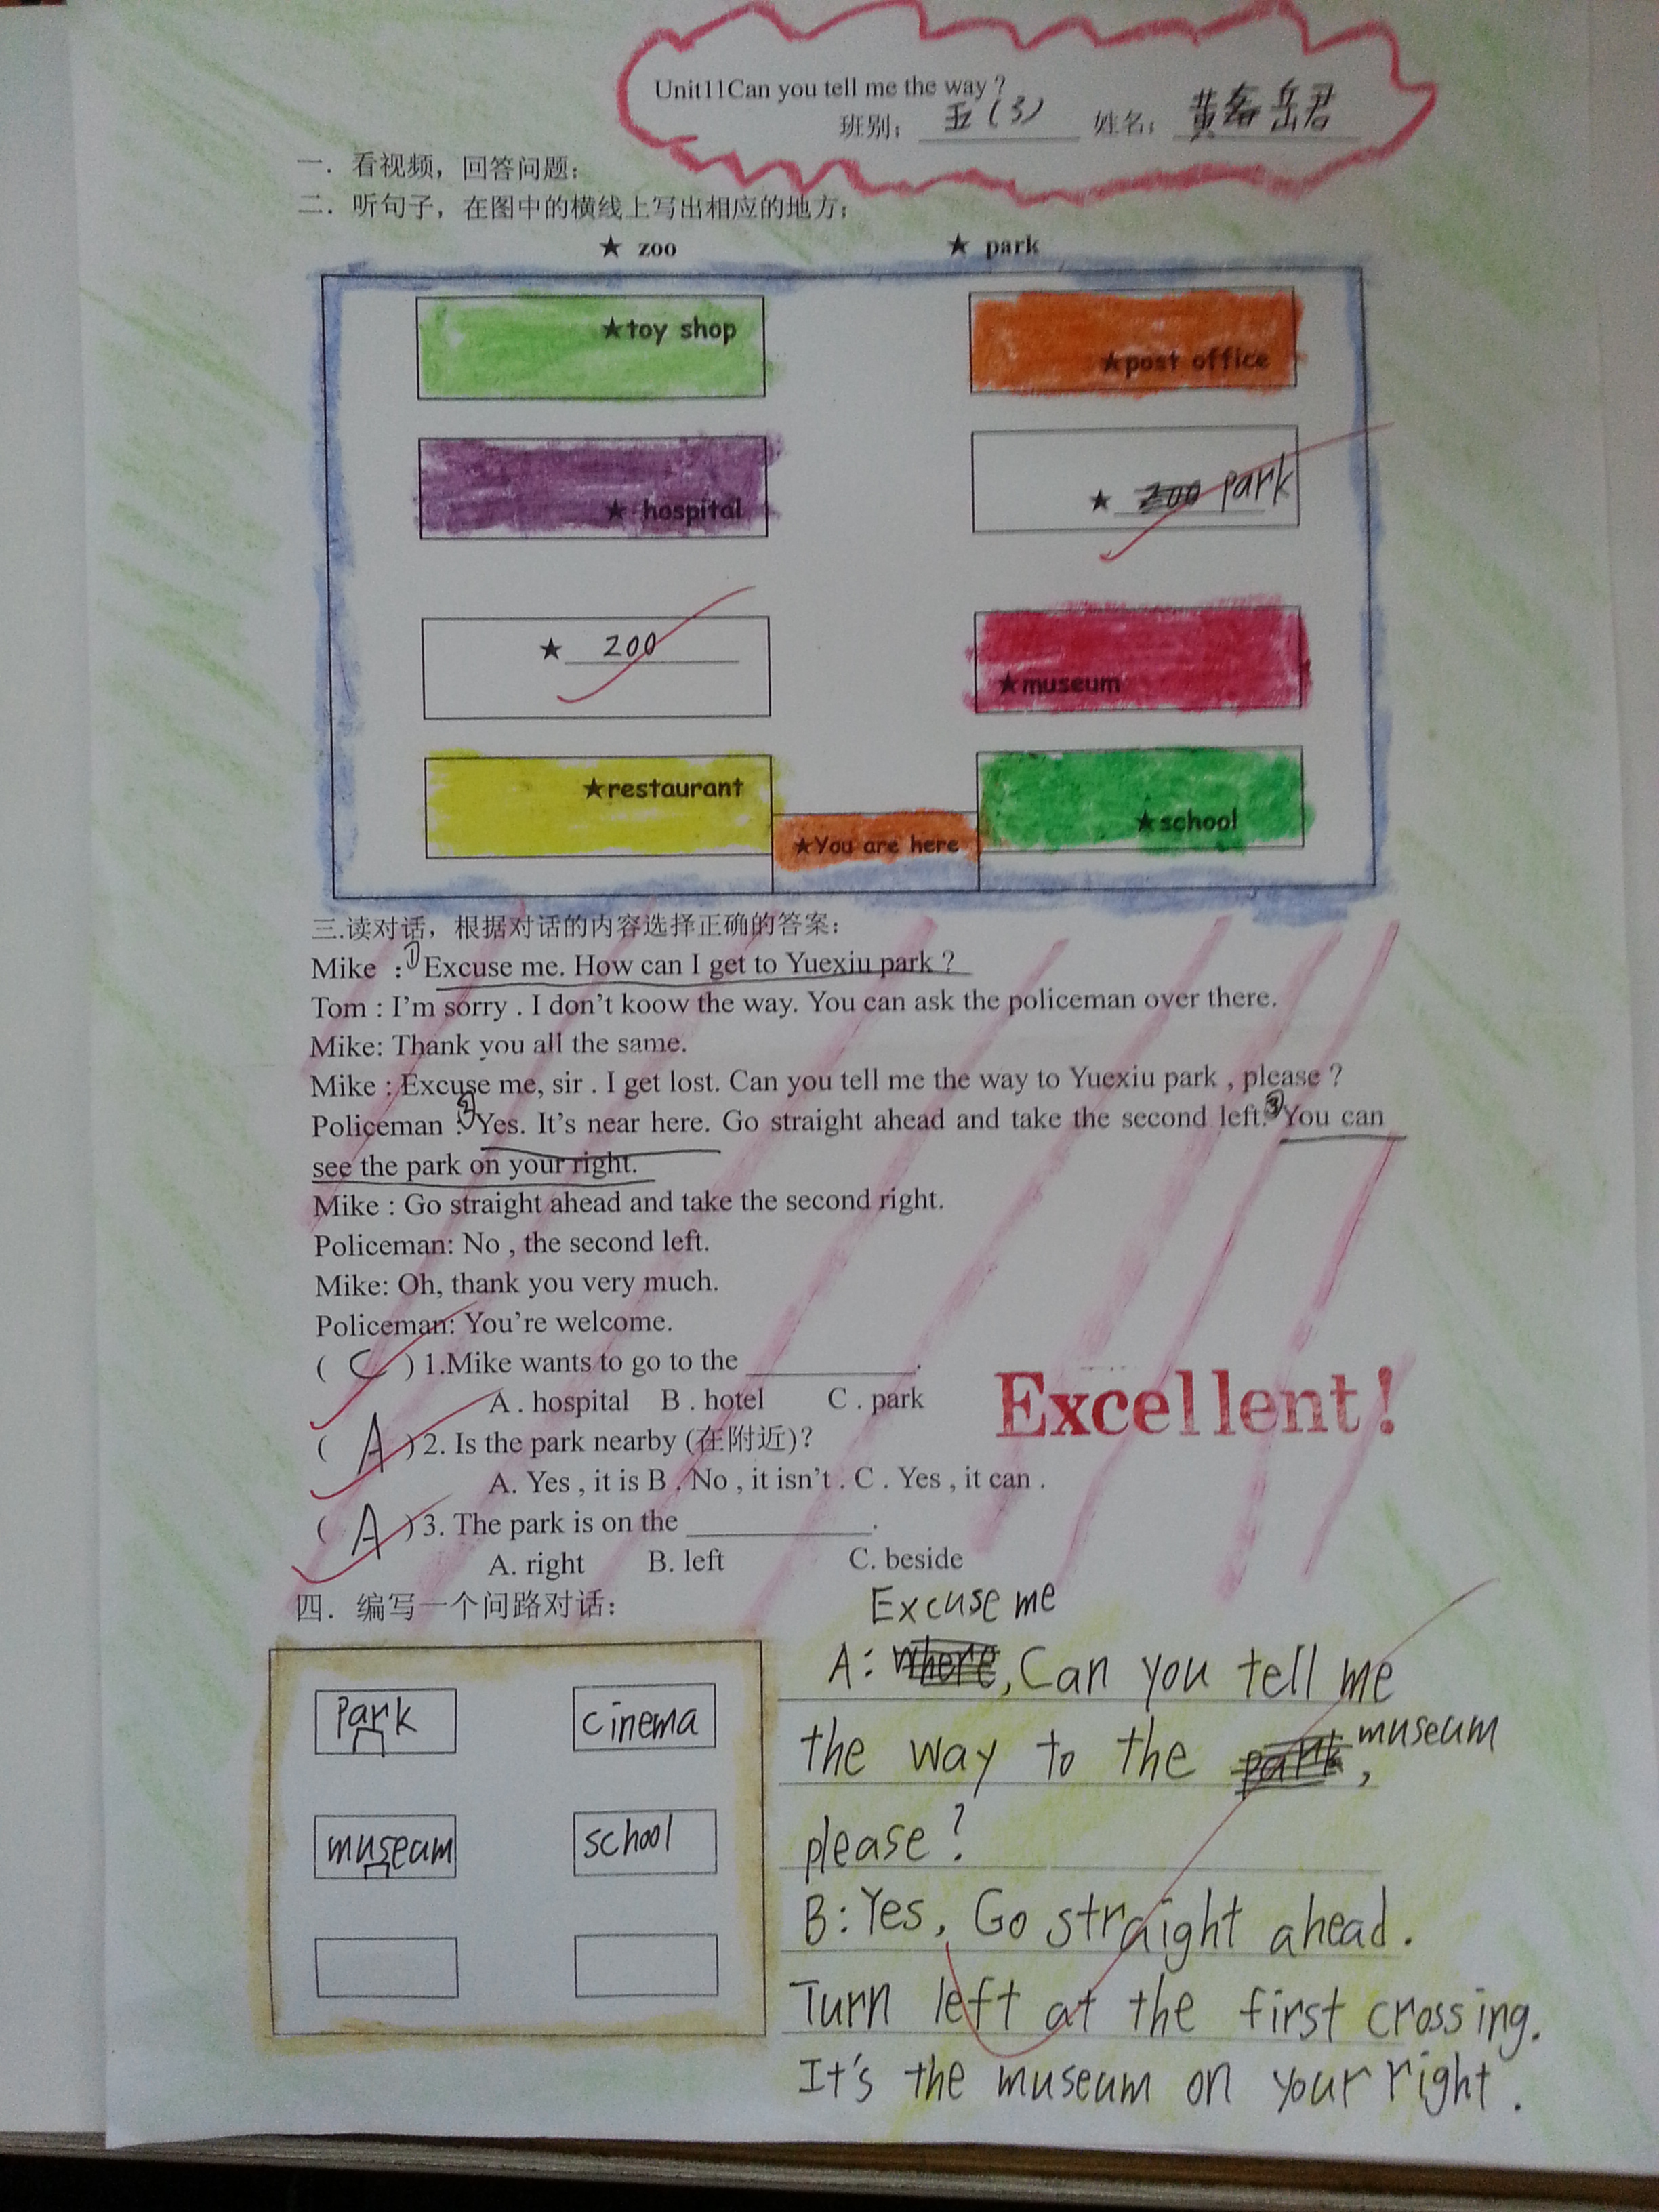 Unit11Can you tell me the way ?
班别： 五（3） 姓名： 黄 岳君
一．看视频，回答问题：
二．听句子，在图中的横线上写出相应的地方：
★ zoo ★ park
★toy shop ★post office
★ hospital ★ zoo park
★ zoo ★museum
★restaurant ★You are here ★school
三.读对话，根据对话的内容选择正确的答案：
Mike : ① Excuse me. How can I get to Yuexiu park ?
Tom : I'm sorry . I don't koow the way. You can ask the policeman over there.
Mike: Thank you all the same.
Mike : Excuse me, sir . I get lost. Can you tell me the way to Yuexiu park , please ?
Policeman : ② Yes. It's near here. Go straight ahead and take the second left. ③ You can
see the park on your right.
Mike : Go straight ahead and take the second right.
Policeman: No , the second left.
Mike: Oh, thank you very much.
Policeman: You're welcome.
( C ) 1.Mike wants to go to the ____________.
A . hospital B . hotel C . park
Excellent!
( A ) 2. Is the park nearby (在附近)?
A. Yes , it is B . No , it isn't . C . Yes , it can .
( A ) 3. The park is on the _____________.
A. right B. left C. beside
四．编写一个问路对话：
Park cinema
museum school
Excuse me
A: where, Can you tell me
the way to the park, museum
please?
B: Yes, Go straight ahead.
Turn left at the first crossing.
It's the museum on your right.